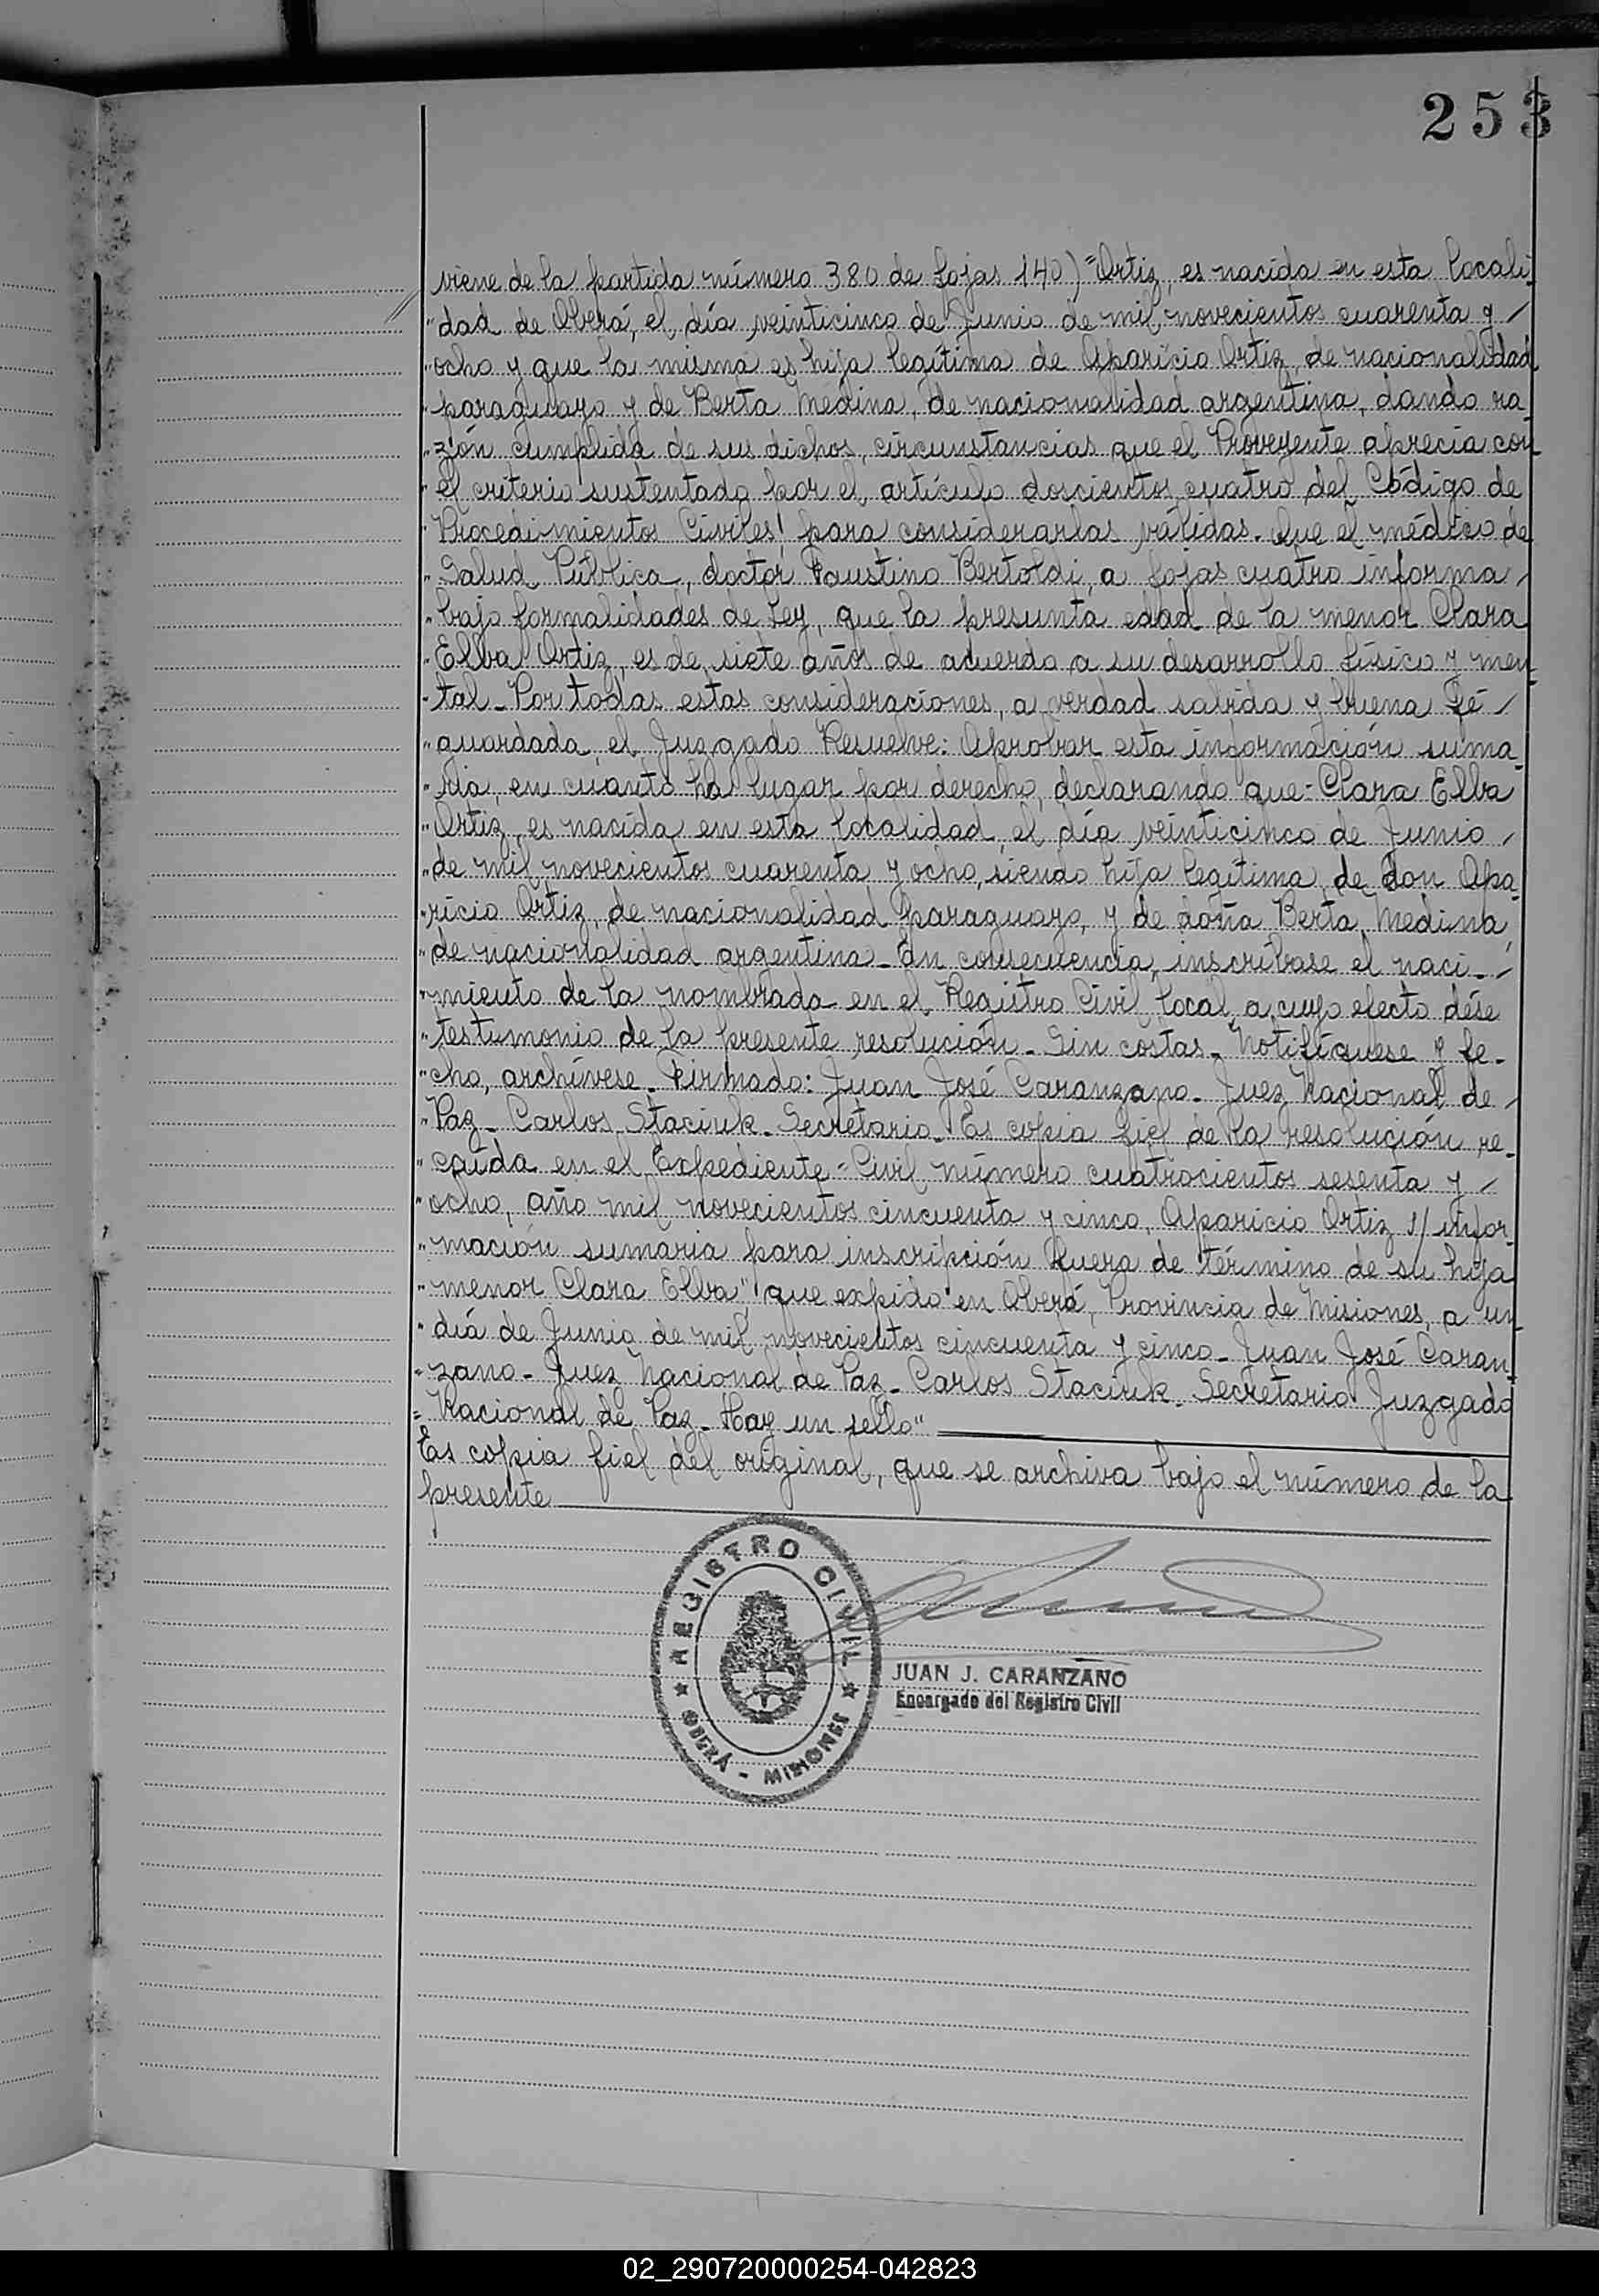 253
viene de la partida número 380 de fojas 140) "Ortiz, es nacida en esta locali-
"dad de Oberá, el día veinticinco de Junio de mil novecientos cuarenta y /
"ocho y que la misma es hija legítima de Aparicio Ortiz, de nacionalidad
"paraguayo y de Berta Medina, de nacionalidad argentina, dando ra-
"zón cumplida de sus dichos, circunstancias que el Proveyente aprecia con
"el criterio sustentado por el artículo doscientos cuatro del Código de
"Procedimientos Civiles, para considerarlas válidas. Que el médico de
"Salud Pública, doctor Faustino Bertoldi, a fojas cuatro informa /
"bajo formalidades de Ley, que la presunta edad de la menor Clara
"Elba Ortiz, es de siete años de acuerdo a su desarrollo físico y men-
"tal_ Por todas estas consideraciones, a verdad sabida y buena fé /
"guardada, el Juzgado Resuelve: Aprobar esta información suma-
"ria, en cuanto ha lugar por derecho, declarando que: Clara Elba
"Ortiz, es nacida en esta localidad, el día veinticinco de Junio /
"de mil novecientos cuarenta y ocho, siendo hija legítima de don Apa-
"ricio Ortiz, de nacionalidad paraguayo, y de doña Berta Medina,
"de nacionalidad argentina_ En consecuencia, inscríbase el naci- /
"miento de la nombrada en el Registro Civil local, a cuyo efecto dése
"testimonio de la presente resolución_ Sin costas_ Notifíquese y fe-
"cho, archívese_ Firmado: Juan José Caranzano_ Juez Nacional de /
"Paz_ Carlos Staciuk_ Secretario_ Es copia fiel de la resolución re-
"caída en el Expediente=Civil número cuatrocientos sesenta y /
"ocho, año mil novecientos cincuenta y cinco, Aparicio Ortiz s/ infor-
"mación sumaria para inscripción fuera de término de su hija
"menor Clara Elba", que expido en Oberá, Provincia de Misiones, a un
"día de Junio de mil novecientos cincuenta y cinco_ Juan José Caran-
"zano_ Juez Nacional de Paz_ Carlos Staciuk_ Secretario Juzgado
"Nacional de Paz_ Hay un sello"
Es copia fiel del original, que se archiva bajo el número de la
presente
REGISTRO CIVIL
OBERÁ - MISIONES
JUAN J. CARANZANO
Encargado del Registro Civil
02_290720000254-042823